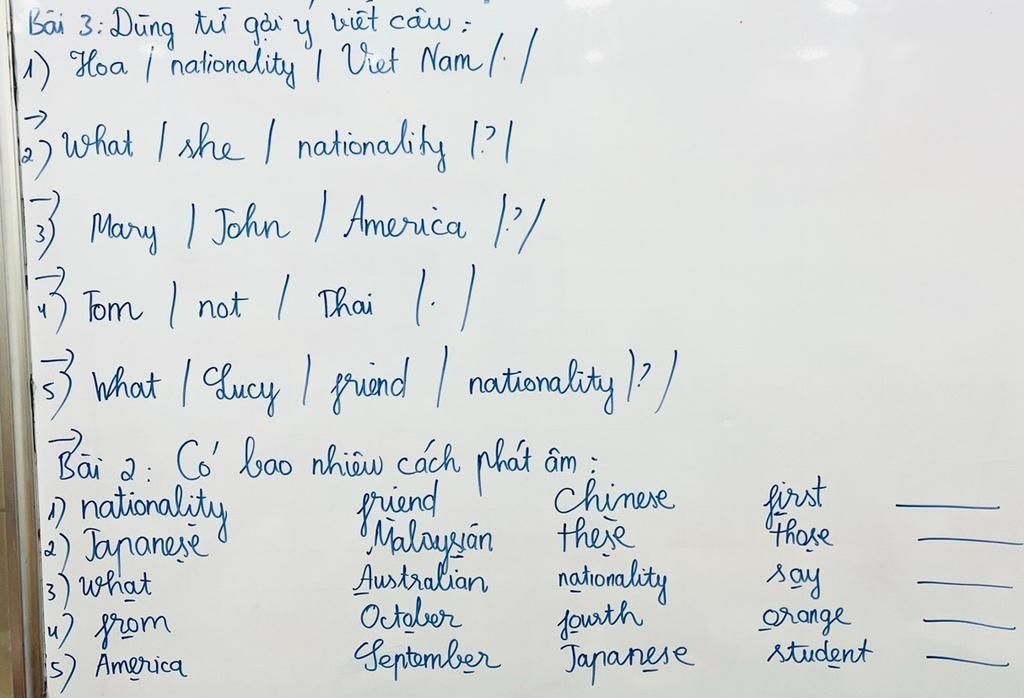 Bài 3: Dùng từ gợi ý viết câu:
1) Hoa / nationality / Viet Nam / . /
→
2) What / she / nationality / ? /
→
3) Mary / John / America / ? /
→
4) Tom / not / Thai / . /
→
5) What / Lucy / friend / nationality / ? /
→
Bài 2: Có bao nhiêu cách phát âm:
1) nationality friend Chinese first ____
2) Japanese Malaysian these those ____
3) What Australian nationality say ____
4) from October fourth orange ____
5) America September Japanese student ____